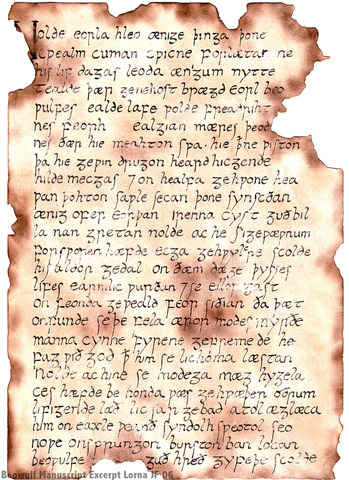 Nolde eorla hleo ænige þinga þone
cƿealm cuman cƿicne forlætan ne
his lif dagas leoda ænigum nytte
tealde þær genehost brægd eorl beo
ƿulfes ealde lafe ƿolde freadriht
nes feorh ealgian mæres þeod
nes ðær hie meahton sƿa hie þ̄ ne ƿiston
þa hie geƿin drugon heard hicgende
hilde mecgas ⁊ on healfa gehƿone hea
ƿan þohton saƿle secan þone synscðan
ænig ofer eorþan irenna cyst guð bil
la nan gretan nolde ac he sigeƿæpnum
forsƿoren hæfde ecga gehƿylcre scolde
his aldor gedal on ðæm dæge þysses
lifes earmlic ƿurðan ⁊ se ellor gast
on feonda geƿeald feor siðian ða þæt
onfunde se þe fela æror modes myrðe
manna cynne fyrene gefremede he
fag ƿið god þ̄ him se lichoma læstan
nolde ac hine se modega mæg hygela
ces hæfde be honda ƿæs gehƿæþer oðrum
lifigende lað lic sar gebad atol æglæca
him on eaxle ƿearð syndolh sƿeotol seo
noƿe onsprungon burston ban locan
beoƿulfe guð hreð gyfeþe scolde
Beowulf Manuscript Excerpt Lorna JF 06